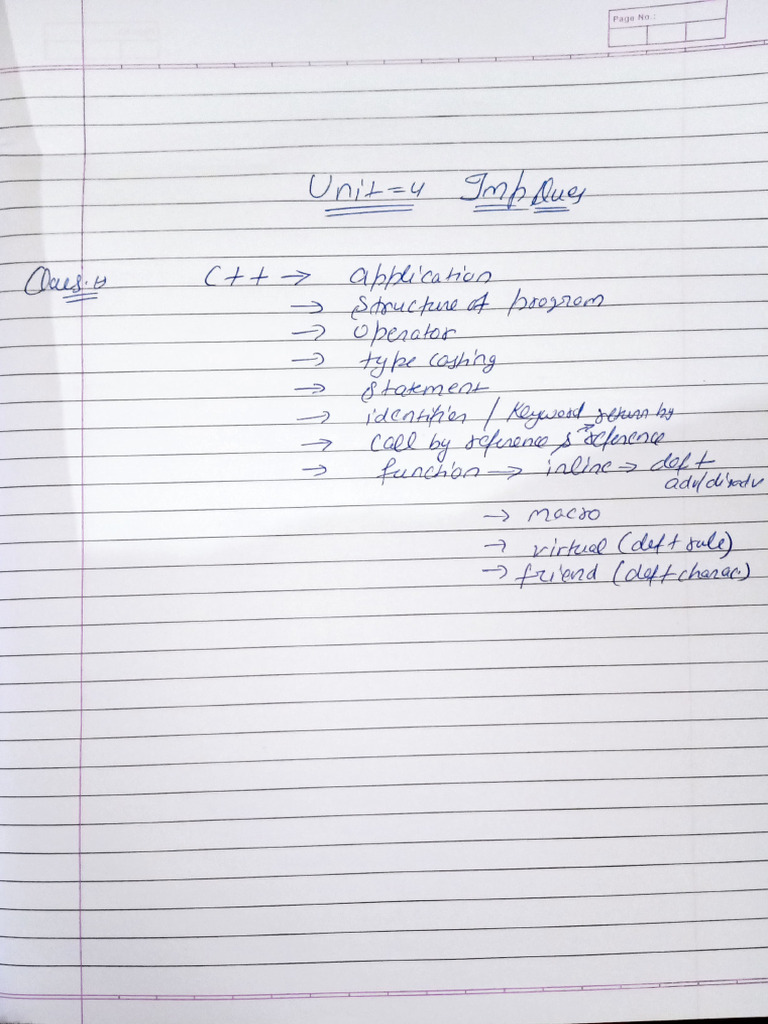 Page No.:
Unit = 4 Imp Ques
Ques. C++ → application
→ Structure of program
→ Operator
→ type casting
→ Statement
→ identifier / Keyword return by
→ Call by reference & → reference
→ function → inline → def +
adv/disadv
→ macro
→ virtual (def + rule)
→ friend (def + charac.)